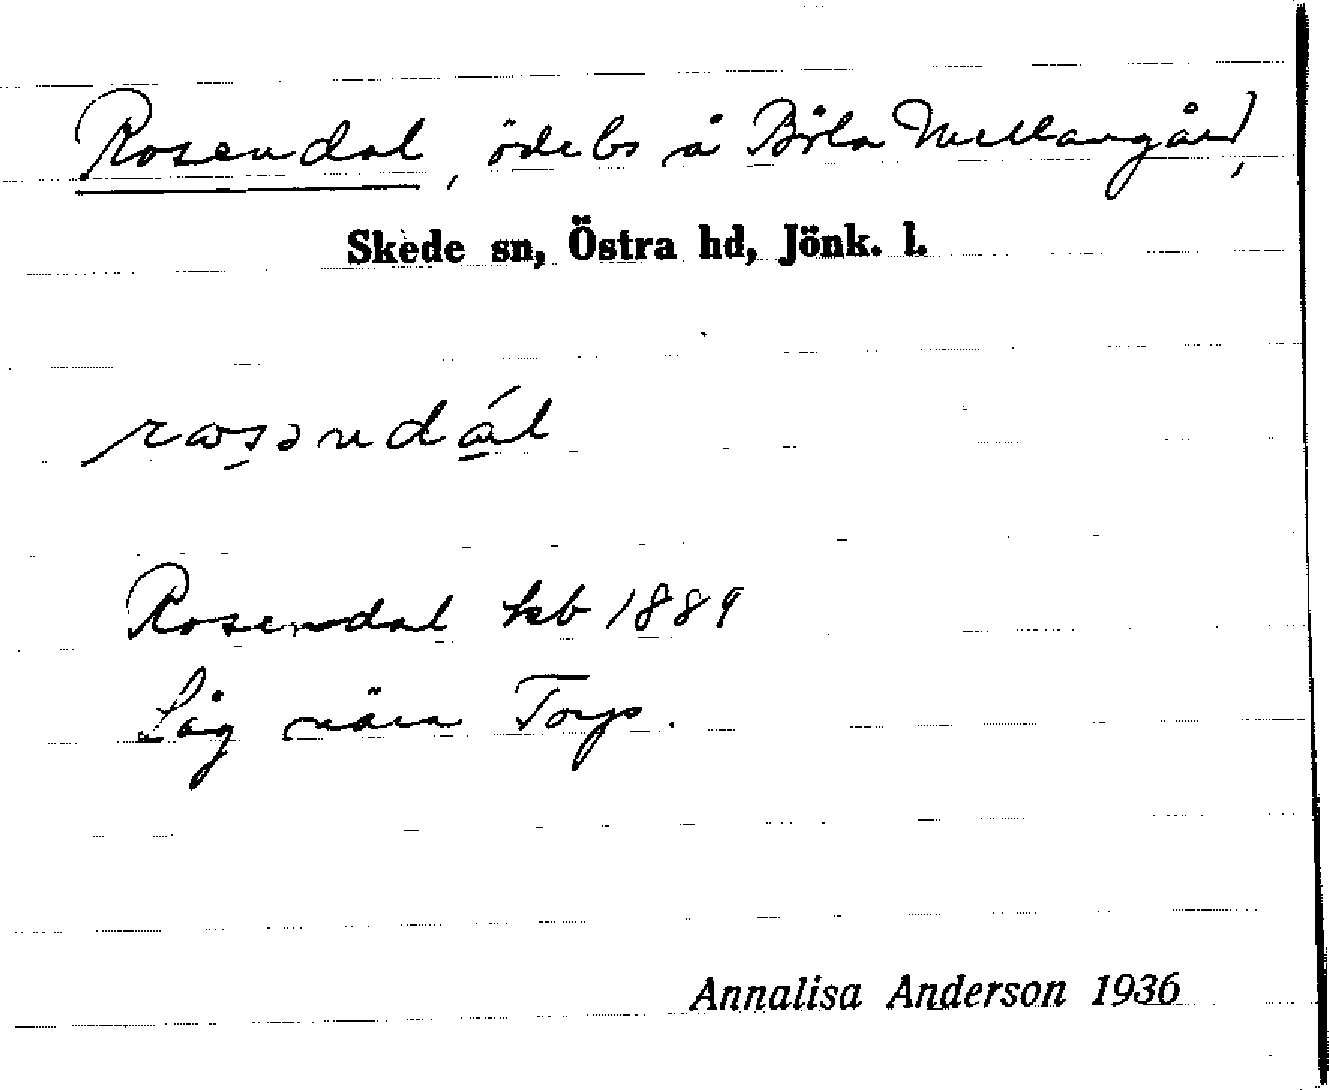 Rosendal, ödebs å Böla Mellangård,
Skede sn, Östra hd, Jönk. l.
rωsəndál
Rosendal hb 1889
Låg nära Torp.
Annalisa Anderson 1936